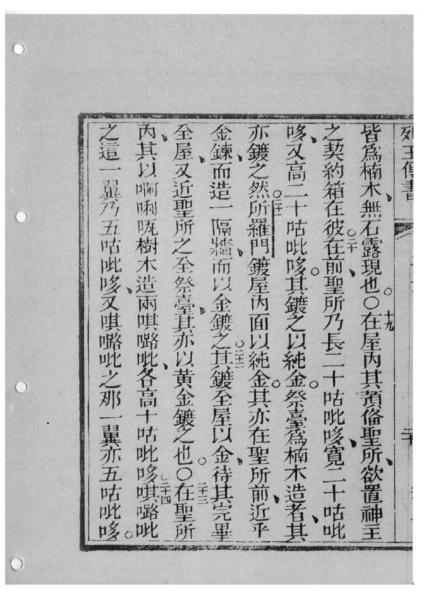 列王傳書
皆爲楠木、無石露現也。○十九在屋內其預俻聖所、欲置神主
之契約箱在彼。二十在前聖所乃長二十咕吡哆、寬二十咕吡
哆、又高二十咕吡哆。其鍍之以純金。祭臺爲楠木造者、其
亦鍍之。二一然所羅門鍍屋內面以純金、其亦在聖所前、近乎
金鍊而造一隔牆、而以金鍍之。二二其鍍全屋以金、待其完畢
全屋、又近聖所之全祭臺、其亦以黃金鍍之也。○二三在聖所
內、其以啊唎㕭樹木、造兩唭𡀔吡、各高十咕吡哆。二四唭𡀔吡
之這一翼乃五咕吡哆、又唭𡀔吡之那一翼、亦五咕吡哆。